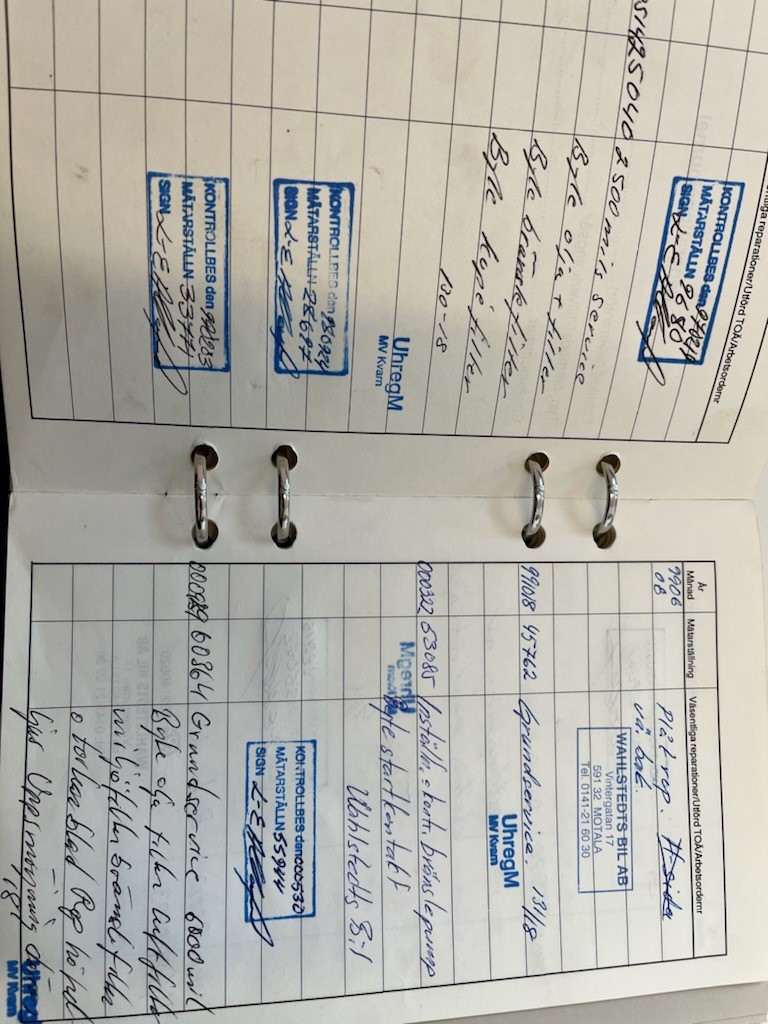 Väsentliga reparationer/Utförd TOÅ/Arbetsordernr
KONTROLLBES den
MÄTARSTÄLLN 2680
SIGN
25040 2500 mils service
Byte olja + filter
Byte bränslefilter
Byte kupéfilter
130-18
UhregM
MV Kvarn
KONTROLLBES den
MÄTARSTÄLLN 28697
SIGN
KONTROLLBES den
MÄTARSTÄLLN
SIGN
År
Månad
Mätarställning
Väsentliga reparationer/Utförd TOÅ/Arbetsordernr
9906
08
Plåtrep. H-sida
vä. bak.
WAHLSTEDTS BIL AB
Vintergatan 17
591 32 MOTALA
Tel. 0141-21 60 30
991018 45762 Grundservice. 13/18
UhregM
MV Kvarn
000322 53085 Inställn. + kontr. bränslepump
Byte startkontakt
UhregM
Wahlstedts Bil
KONTROLLBES den 000532
MÄTARSTÄLLN 55944
SIGN
60864 Grundservice 6000 mil
Byte olja filter luftfilter
miljöfilter bränslefilter
torkarblad Rep höjd
ljus
18
Uhreg
MV Kvarn